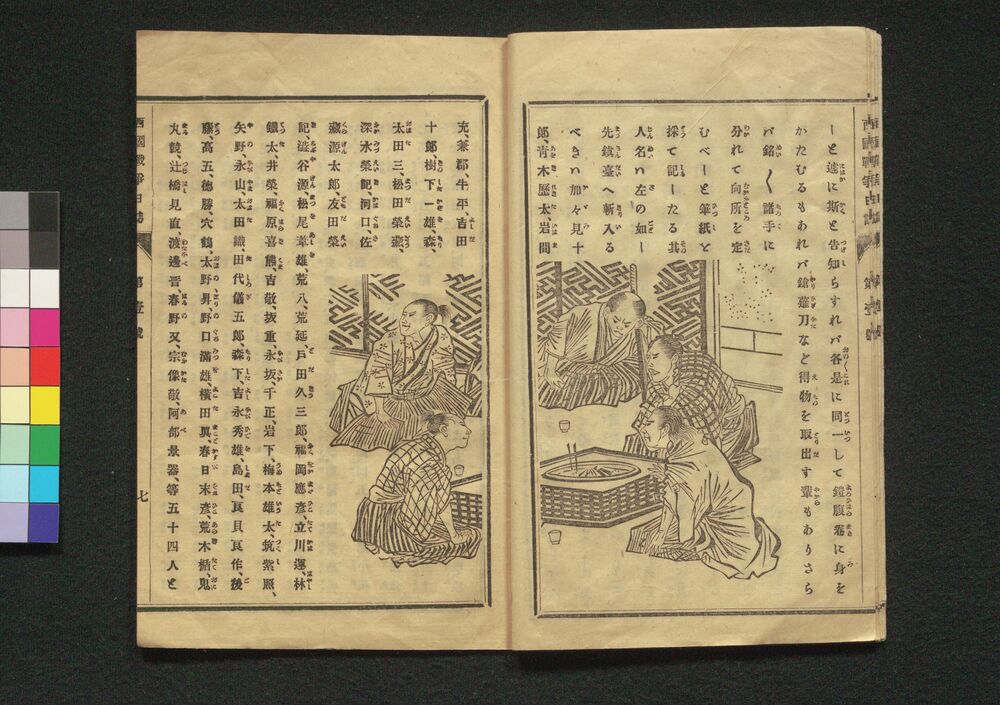 ーと遽に斯と告知らすれバ各是に同一して鎧腹巻に身を
かたむるもあれバ鎗薙刀など得物を取出す輩もありさら
バ銘〱諸手に
分れて向所を定
むべーと筆紙と
採て記ーたる其
人名ハ左の如ー
先鎮臺へ斬入る
べきハ加々見十
郎、青木歴太、岩間
西國戰爭日誌　第壹號
充、兼郡、牛平、吉田
十郎樹下一雄、森
太田三、松田榮藏、
深水榮記、河口、佐
藏源太郎、友田榮
記、澁谷源、松尾葦雄、荒八荒延、戸田久三郎、福岡應彥、立川運、林
鐵太井榮、福原喜熊、吉敬、坂重永坂、千正、岩下、梅本雄太、筑紫照、
矢野、永山、太田織、田代儀五郎、森下、吉永秀雄、島田、真貝、真作、後
藤、高五、德勝、穴鶴、太野昇、野口滿雄、橫田真、春日末彥、荒木楯、鬼
丸競、辻橋見直、渡邊晋、春野又、宗像敬、阿部景器、等五十四人と
七